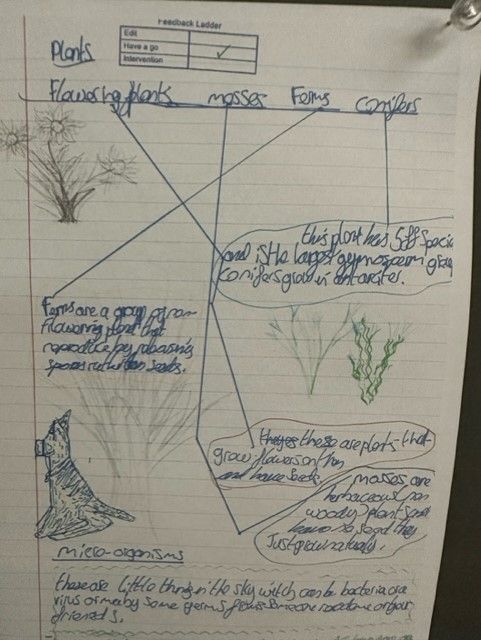 Feedback Ladder
Edit
Have a go ✓
Intervention
Plants
Flowering plants mosses Ferns Conifers
this plant has 5
and is the largest gymnosperm
Conifers grow in
Ferns are a group of non
Flowering plant that
reproduce by releasing
spores rather than seeds.
these are plants that
grow flowers on
and have seeds
mosses are
herbaceous non
woody plants and
have no seed they
Just grow naturally.
micro-organisms
these are little things in the sky witch can be bacteria or a
virus or maby some germs